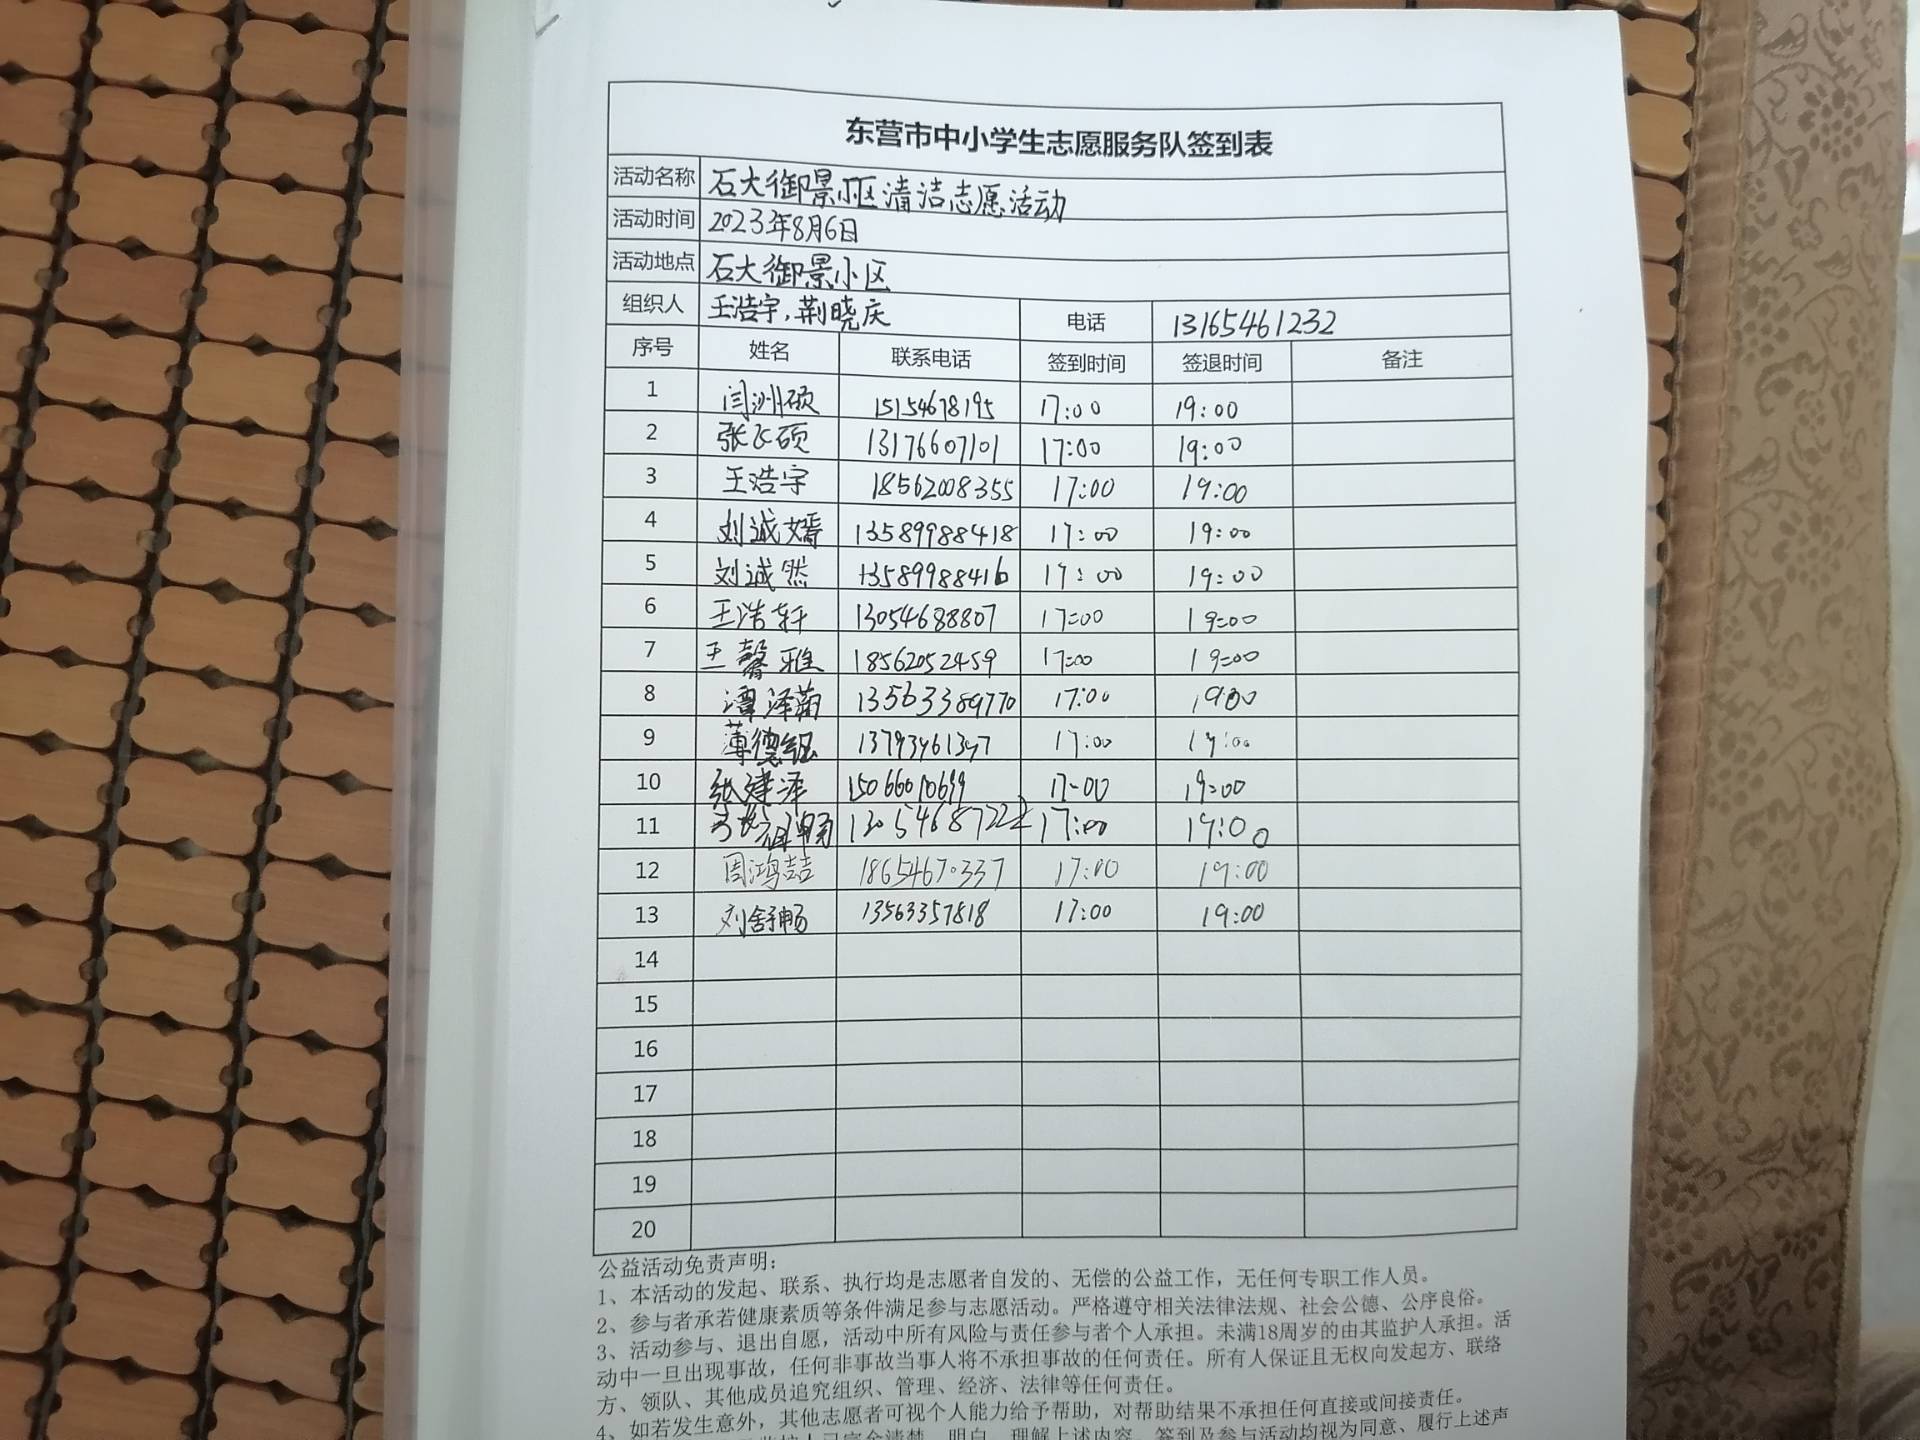 东营市中小学生志愿服务队签到表
活动名称 石大御景小区清洁志愿活动
活动时间 2023年8月6日
活动地点 石大御景小区
组织人 王浩宇,荆晓庆 电话 13165461232
序号 姓名 联系电话 签到时间 签退时间 备注
1 闫洲硕 15154678195 17:00 19:00
2 张飞硕 13176607101 17:00 19:00
3 王浩宇 18562008355 17:00 19:00
4 刘诚嫣 13589988418 17:00 19:00
5 刘诚然 13589988416 17:00 19:00
6 王浩轩 13054688807 17:00 19:00
7 王馨雅 18562052459 17:00 19:00
8 谭泽菊 13563389770 17:00 19:00
9 薄德钰 17:00 19:00
10 张建泽 17:00 19:00
11 17:00 19:00
12 周鸿喆 18654670337 17:00 19:00
13 刘舒畅 13563357818 17:00 19:00
14
15
16
17
18
19
20
公益活动免责声明:
1、本活动的发起、联系、执行均是志愿者自发的、无偿的公益工作，无任何专职工作人员。
2、参与者承若健康素质等条件满足参与志愿活动。严格遵守相关法律法规、社会公德、公序良俗。
3、活动参与、退出自愿，活动中所有风险与责任参与者个人承担。未满18周岁的由其监护人承担。活
动中一旦出现事故，任何非事故当事人将不承担事故的任何责任。所有人保证且无权向发起方、联络
方、领队、其他成员追究组织、管理、经济、法律等任何责任。
4、如若发生意外，其他志愿者可视个人能力给予帮助，对帮助结果不承担任何直接或间接责任。
明白、理解上述内容。签到及参与活动均视为同意、履行上述声